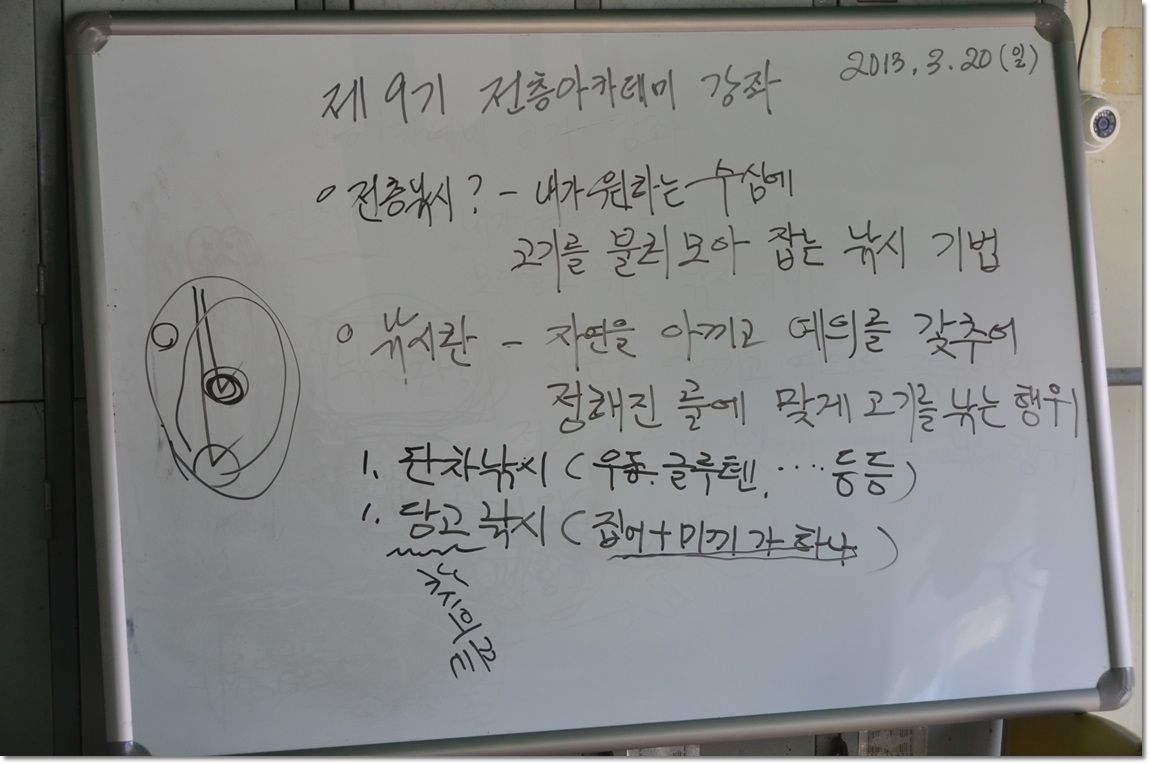 2013. 3. 20 (일)
제 9기 전층아카데미 강좌
○ 전층낚시? - 내가 원하는 수심에
고기를 불러모아 잡는 낚시 기법
○ 낚시란 - 자연을 아끼고 예의를 갖추어
정해진 룰에 맞게 고기를 낚는 행위
1. 단차낚시 (우동. 글루텐, ···· 등등)
1. 당고 낚시 (집어+미끼가 하나)
낚시의 꽃